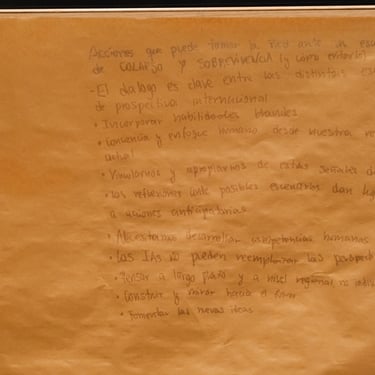 Acciones que puede tomar la Red ante un
de COLAPSO y SOBREVIVENCIA (y cómo evitarlo)
- El dialogo es clave entre los distintos
de prospectiva internacional
• Incorporar habilidades blandas
• Conciencia y enfoque humano desde nuestra
actual
• Vincularnos y apropiarnos de estas señales
• Las reflexiones ante posibles escenarios dan
a acciones anticipatorias
• Necesitamos desarrollar competencias humanas
• Las IAs no pueden reemplazar las
• Pensar a largo plazo y a nivel regional no
• Construir y mirar hacia el
• Fomentar las nuevas ideas